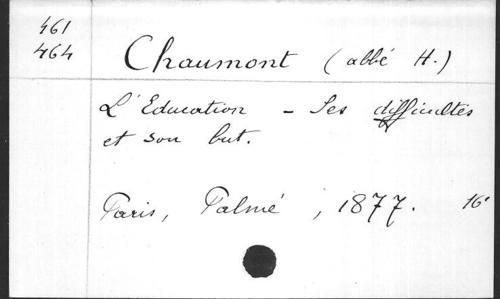 461
464
Chaumont (abbé H.)
L'Education - Ses difficultés
et son but.
Paris, Palmé, 1877. 16°